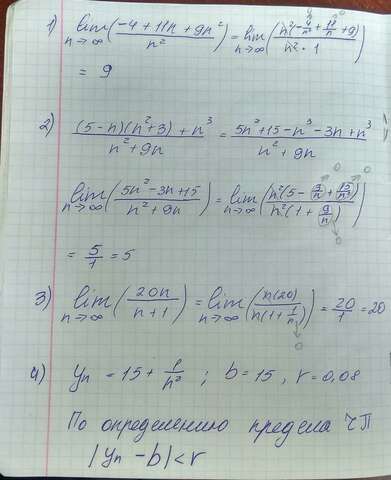 1) lim n→∞ (-4 + 11n + 9n² / n²) = lim n→∞ (n²(-4/n² + 11/n + 9) / n² · 1)
= 9
2) (5-n)(n²+3) + n³ / n²+9n = 5n²+15-n³-3n+n³ / n²+9n
lim n→∞ (5n²-3n+15 / n²+9n) = lim n→∞ (n²(5 - 3/n + 15/n²) / n²(1 + 9/n))
= 5/1 = 5
3) lim n→∞ (20n / n+1) = lim n→∞ (n(20) / n(1+1/n)) = 20/1 = 20
4) yn = 15 + 1/n² ; b=15 , r=0,08
По определению предела ЧП
|yn - b| < r